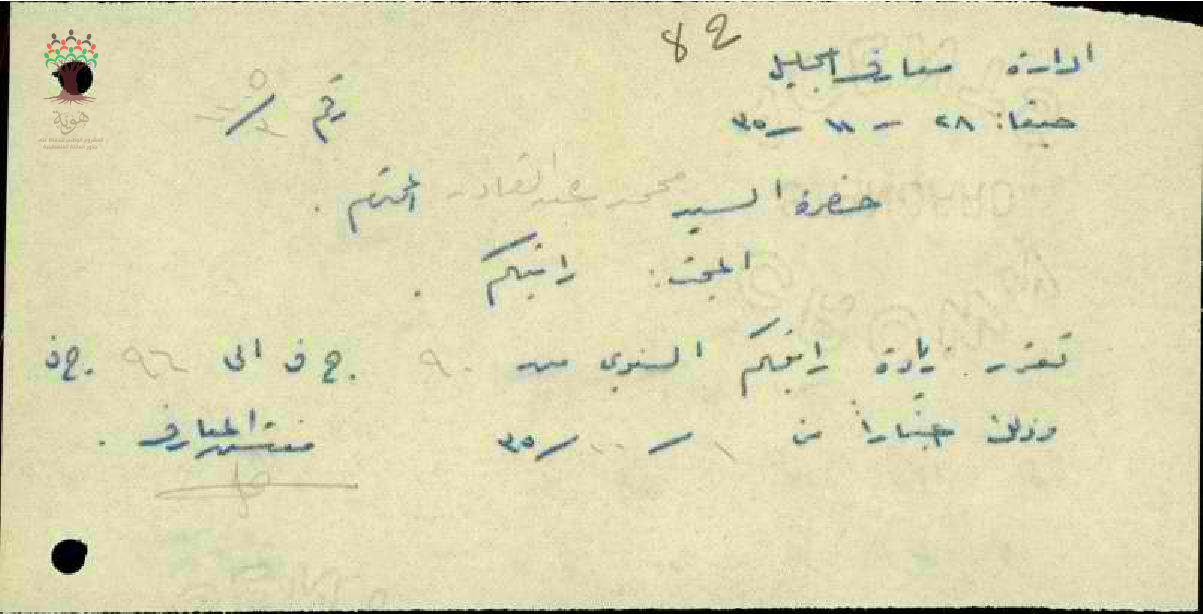 82
ادارة معارف الجليل
حيفا: ٢٨ – ١١ – ٣٥
رقم /
حضرة السيد محمد عبد القادر المحترم .
المبحث: راتبكم .
تقرر زيادة راتبكم السنوي من ٩٠ ج.ف الى ٩٦ ج.ف
وذلك اعتبارا من ١ / ١٠ / ٣٥
مفتش المعارف .
هوية